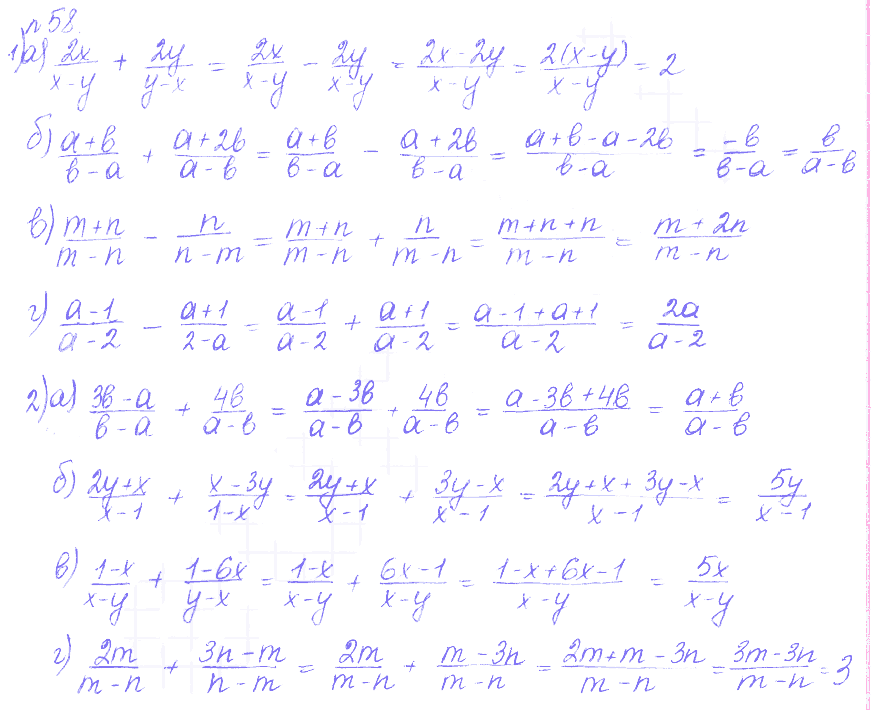 n 58.
1) а) 2x/(x-y) + 2y/(y-x) = 2x/(x-y) - 2y/(x-y) = (2x-2y)/(x-y) = 2(x-y)/(x-y) = 2
б) (a+b)/(b-a) + (a+2b)/(a-b) = (a+b)/(b-a) - (a+2b)/(b-a) = (a+b-a-2b)/(b-a) = -b/(b-a) = b/(a-b)
в) (m+n)/(m-n) - n/(n-m) = (m+n)/(m-n) + n/(m-n) = (m+n+n)/(m-n) = (m+2n)/(m-n)
г) (a-1)/(a-2) - (a+1)/(2-a) = (a-1)/(a-2) + (a+1)/(a-2) = (a-1+a+1)/(a-2) = 2a/(a-2)
2) а) (3b-a)/(b-a) + 4b/(a-b) = (a-3b)/(a-b) + 4b/(a-b) = (a-3b+4b)/(a-b) = (a+b)/(a-b)
б) (2y+x)/(x-1) + (x-3y)/(1-x) = (2y+x)/(x-1) + (3y-x)/(x-1) = (2y+x+3y-x)/(x-1) = 5y/(x-1)
в) (1-x)/(x-y) + (1-6x)/(y-x) = (1-x)/(x-y) + (6x-1)/(x-y) = (1-x+6x-1)/(x-y) = 5x/(x-y)
г) 2m/(m-n) + (3n-m)/(n-m) = 2m/(m-n) + (m-3n)/(m-n) = (2m+m-3n)/(m-n) = (3m-3n)/(m-n) = 3